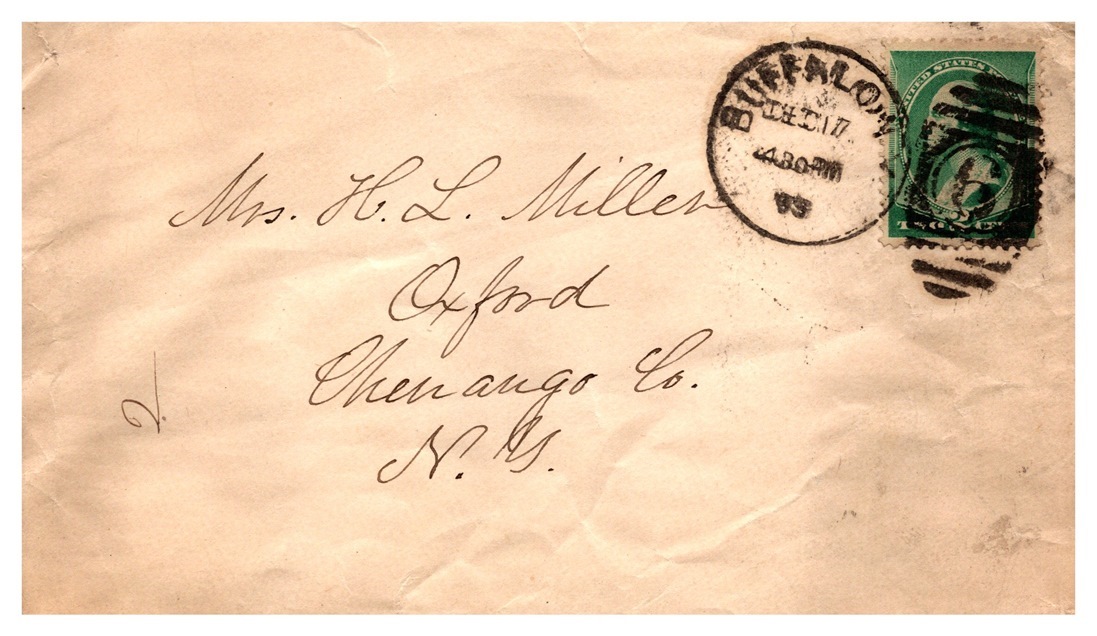 BUFFALO
DEC 17
430 AM
UNITED STATES
6
TWO 2 CE
Mrs. H. L. Miller
Oxford
Chenango Co.
N. Y.
2.